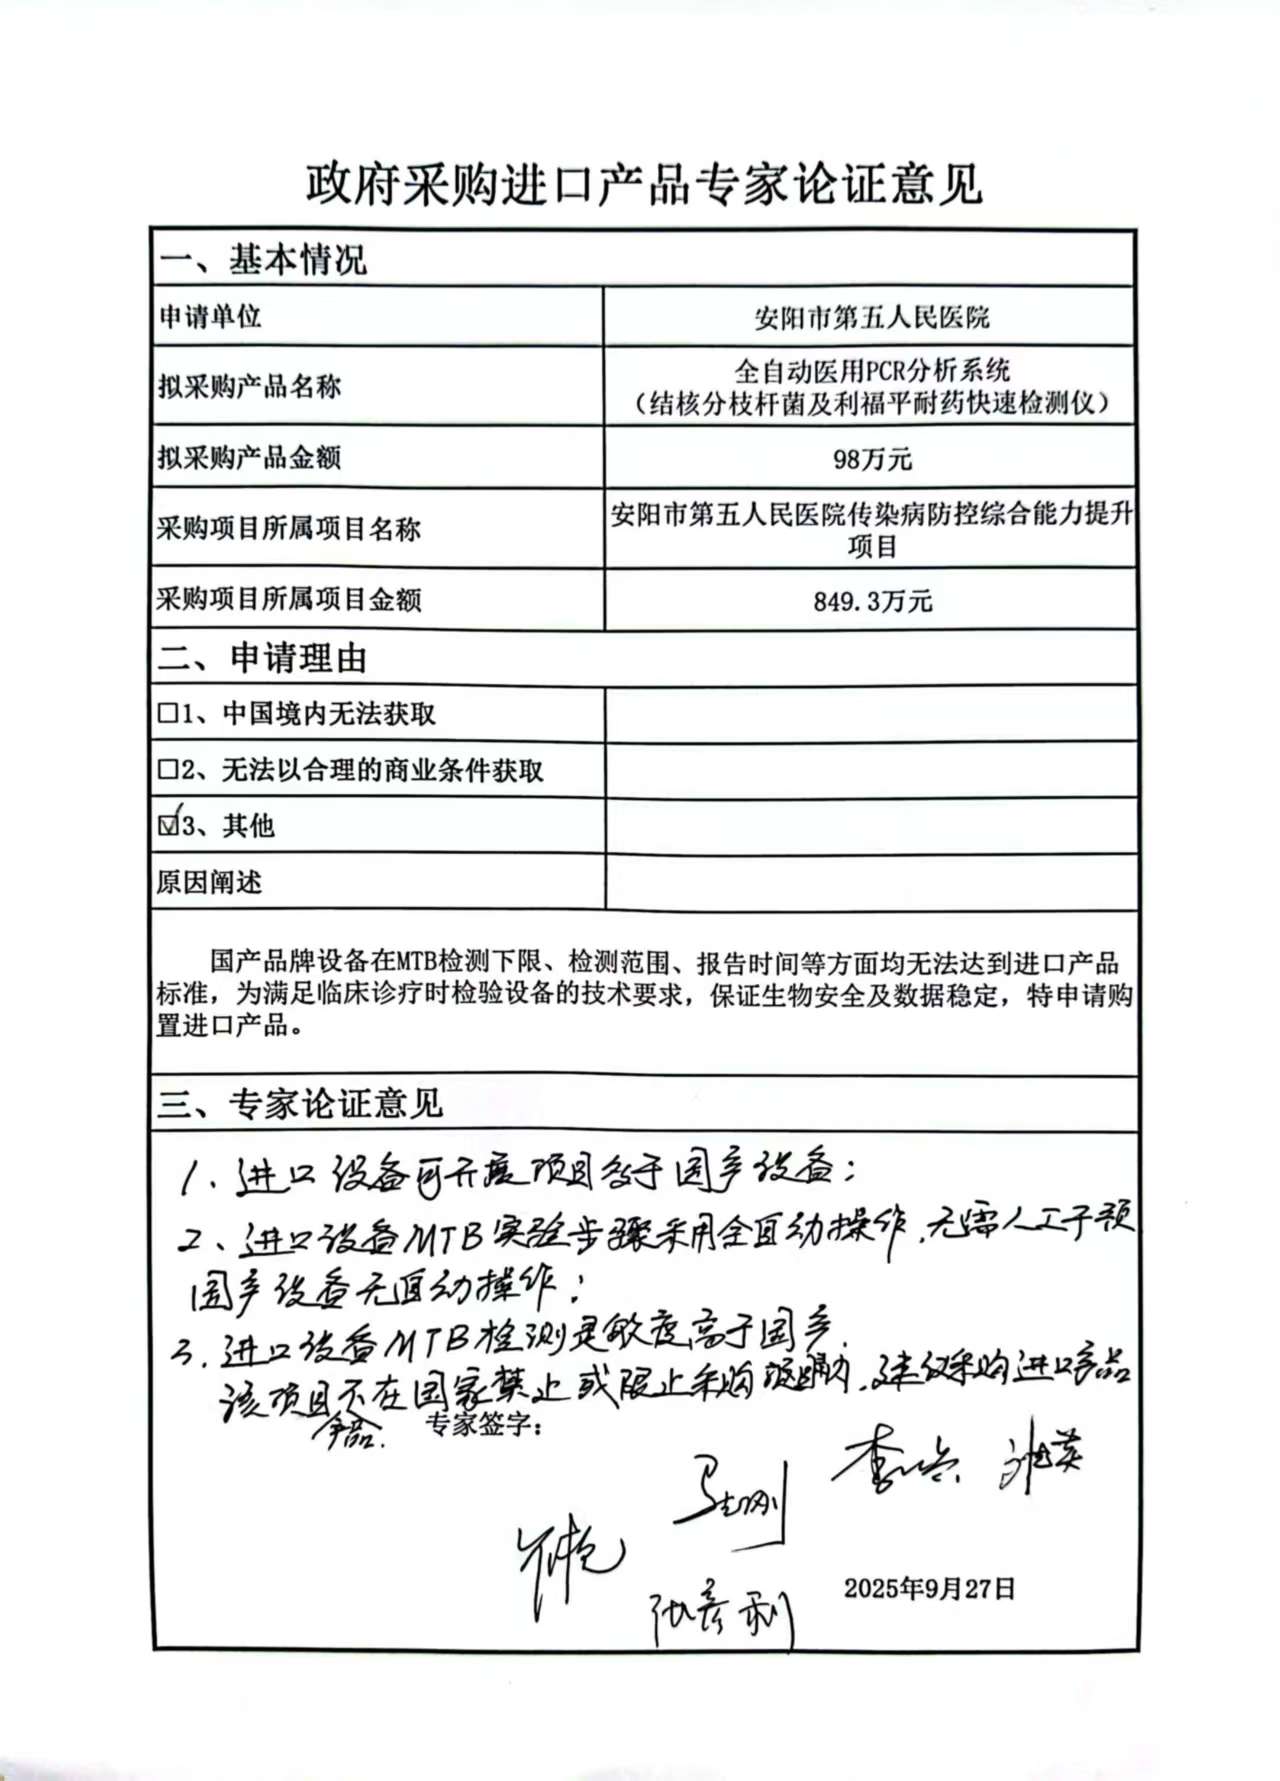 政府采购进口产品专家论证意见
一、基本情况
申请单位
安阳市第五人民医院
拟采购产品名称
全自动医用PCR分析系统
（结核分枝杆菌及利福平耐药快速检测仪）
拟采购产品金额
98万元
采购项目所属项目名称
安阳市第五人民医院传染病防控综合能力提升
项目
采购项目所属项目金额
849.3万元
二、申请理由
□1、中国境内无法获取
□2、无法以合理的商业条件获取
☑3、其他
原因阐述
国产品牌设备在MTB检测下限、检测范围、报告时间等方面均无法达到进口产品
标准，为满足临床诊疗时检验设备的技术要求，保证生物安全及数据稳定，特申请购
置进口产品。
三、专家论证意见
1、进口设备可开展项目多于国产设备；
2、进口设备MTB实验步骤采用全自动操作，无需人工干预
国产设备无自动操作；
3、进口设备MTB检测灵敏度高于国产，
该项目不在国家禁止或限止采购范围内，建议采购进口产品
专家签字：
2025年9月27日